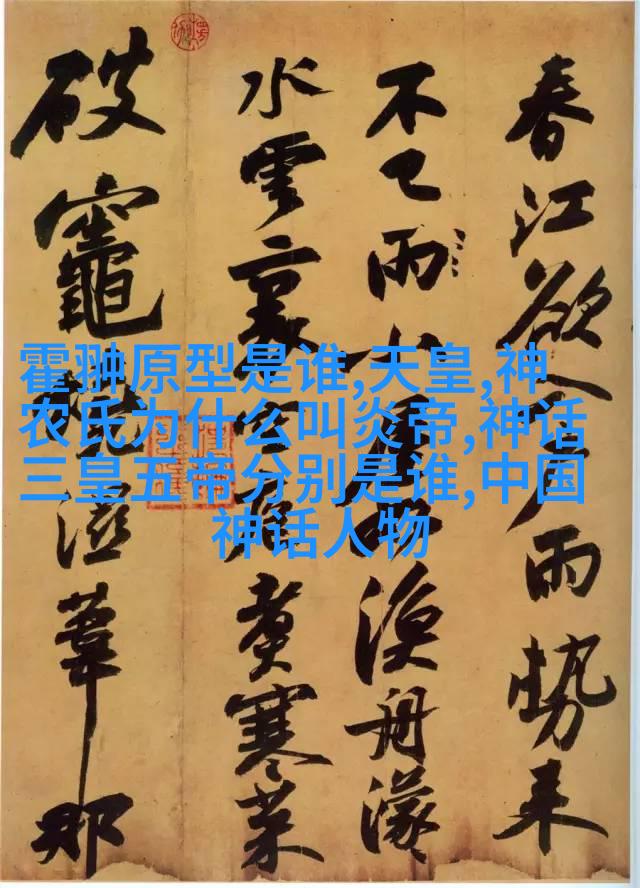 春江欲入户雨勢來
不已雨小屋如漁舟濛
水雲裏空庖煮寒菜
破竈燒濕葦那
霍翀原型是谁,天皇,神
农氏为什么叫炎帝,神话
三皇五帝分别是谁,中国
神话人物